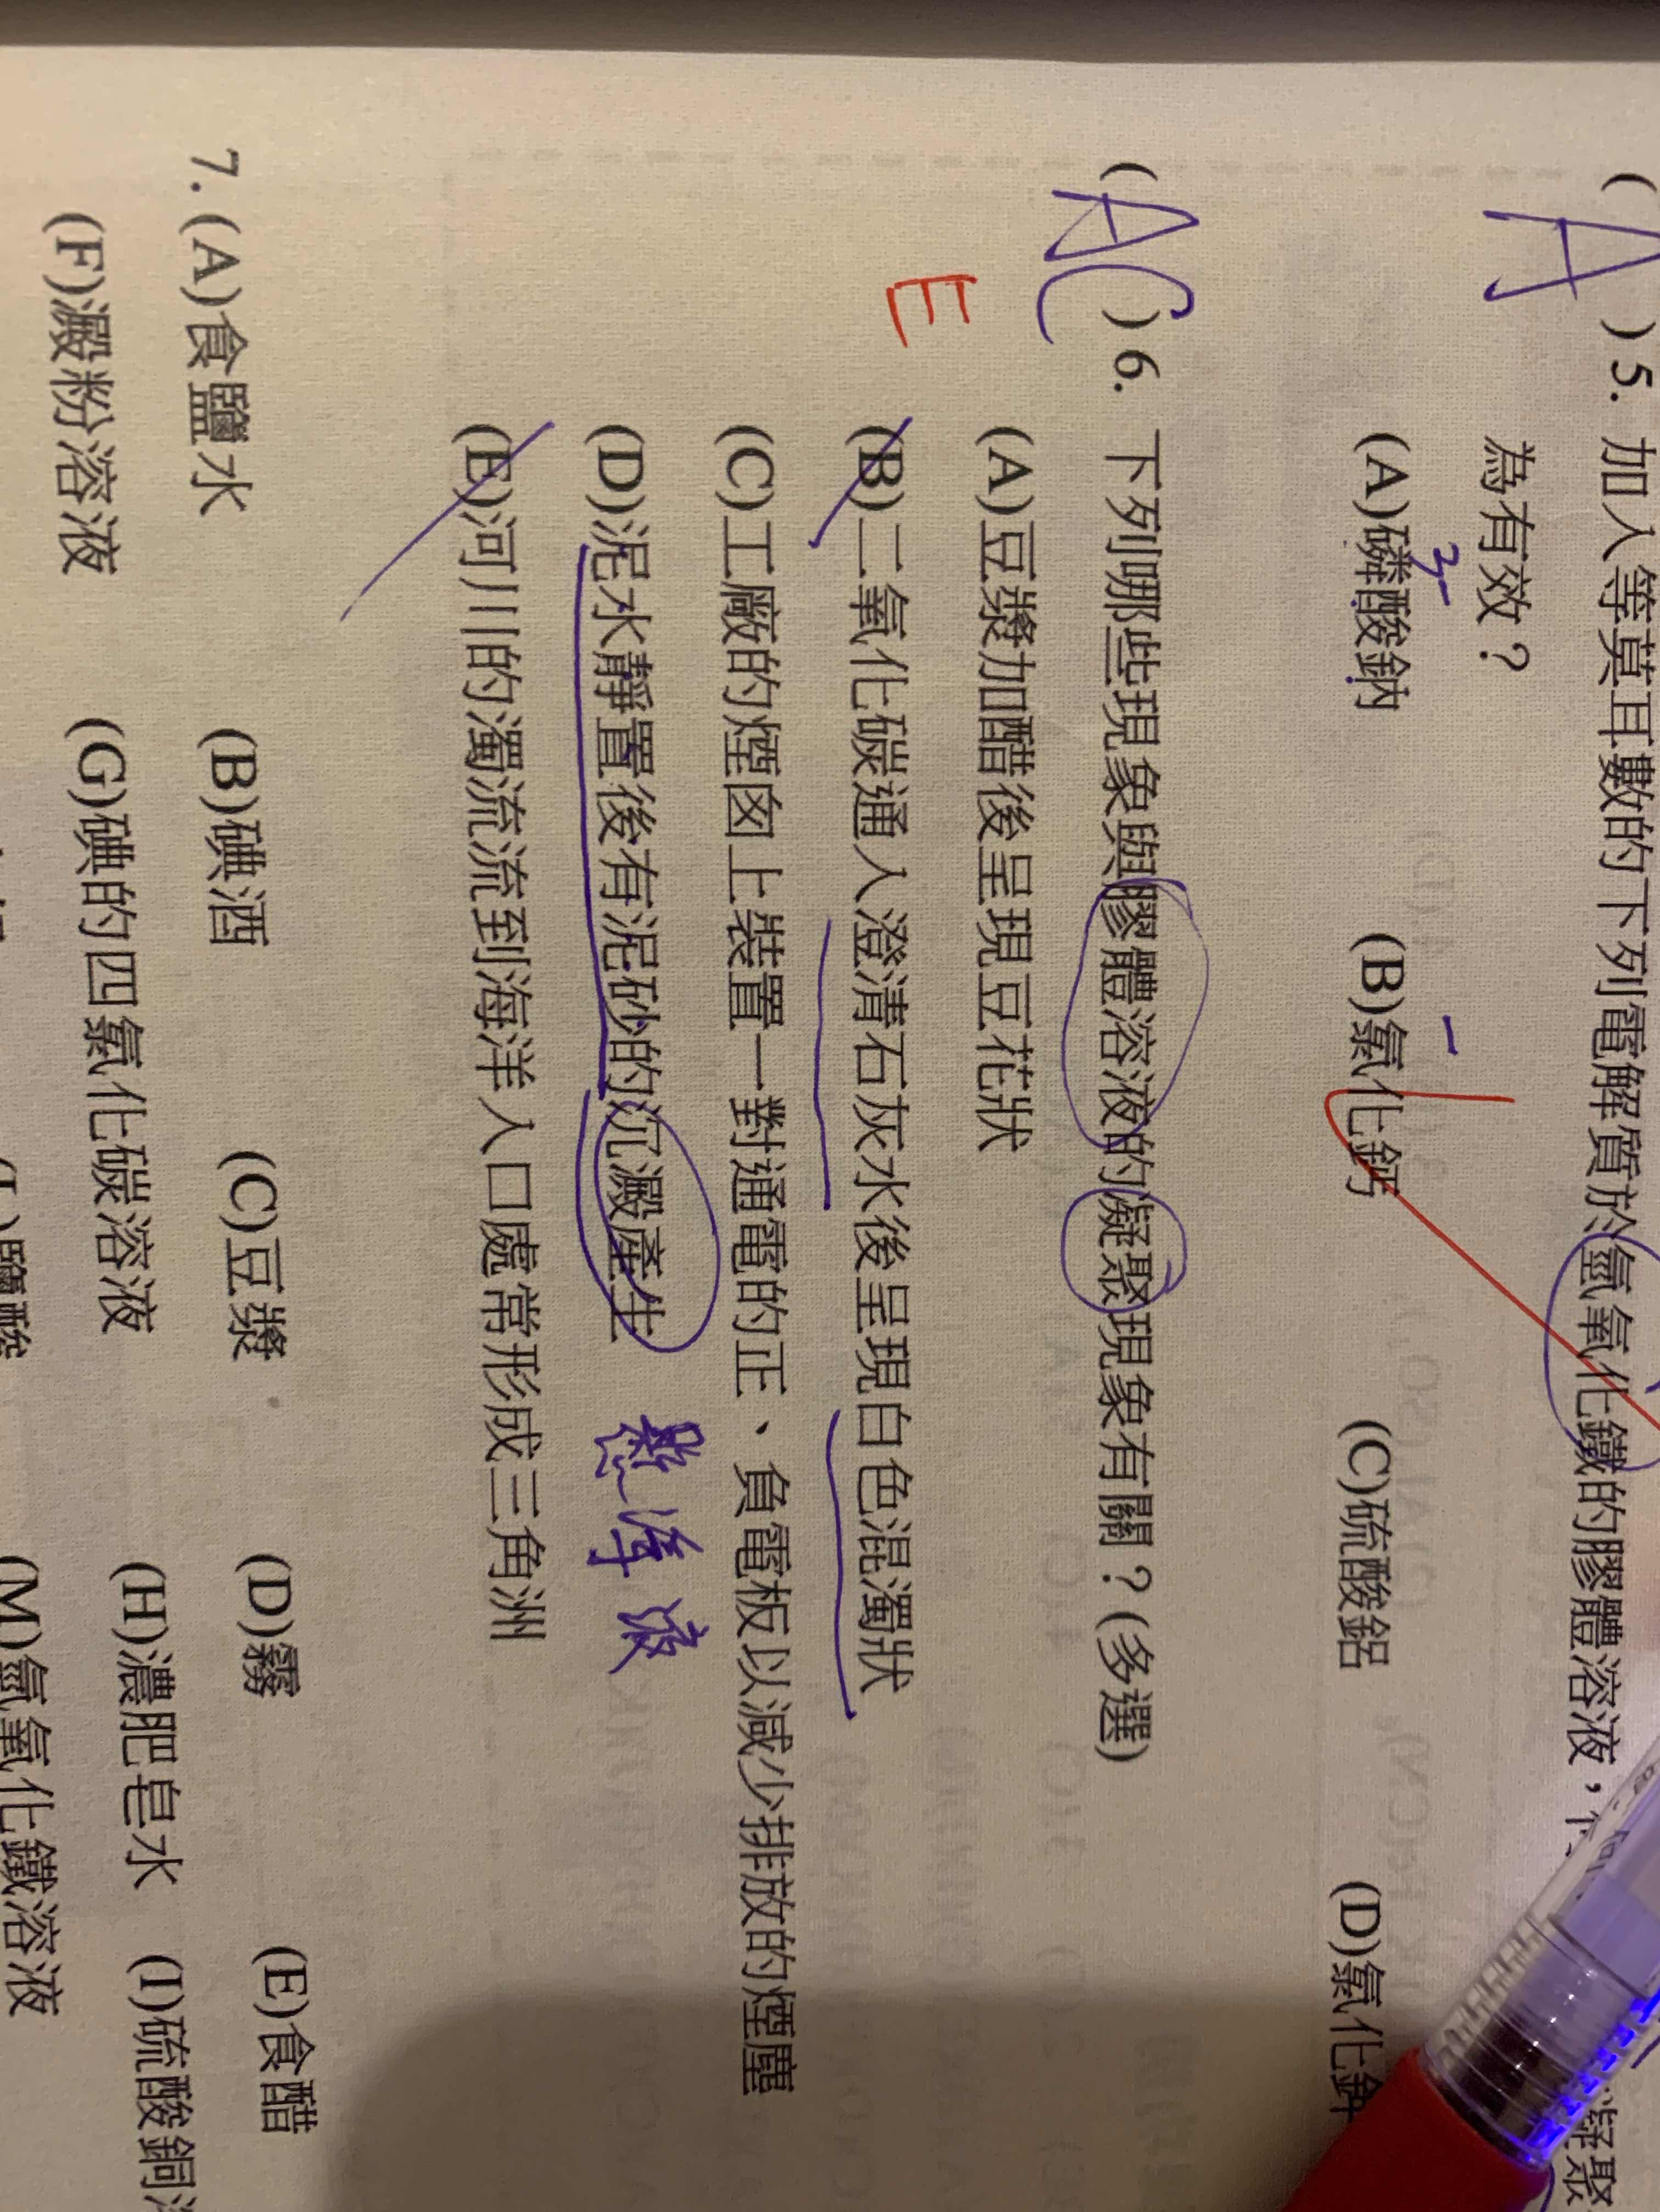 ( A ) 5. 加入等莫耳數的下列電解質於氫氧化鐵的膠體溶液，
凝聚
為有效？
3-
(A)磷酸鈉 (B)氯化鈣 (C)硫酸鋁 (D)氯化鉀
( AC ) 6. 下列哪些現象與膠體溶液的凝聚現象有關？(多選)
E
(A)豆漿加醋後呈現豆花狀
(B)二氧化碳通入澄清石灰水後呈現白色混濁狀
(C)工廠的煙囪上裝置一對通電的正、負電板以減少排放的煙塵
(D)泥水靜置後有泥砂的沉澱產生 懸浮液
(E)河川的濁流流到海洋入口處常形成三角洲
7. (A)食鹽水 (B)碘酒 (C)豆漿 (D)霧 (E)食醋
(F)澱粉溶液 (G)碘的四氯化碳溶液 (H)濃肥皂水 (I)硫酸銅
(M)氫氧化鐵溶液